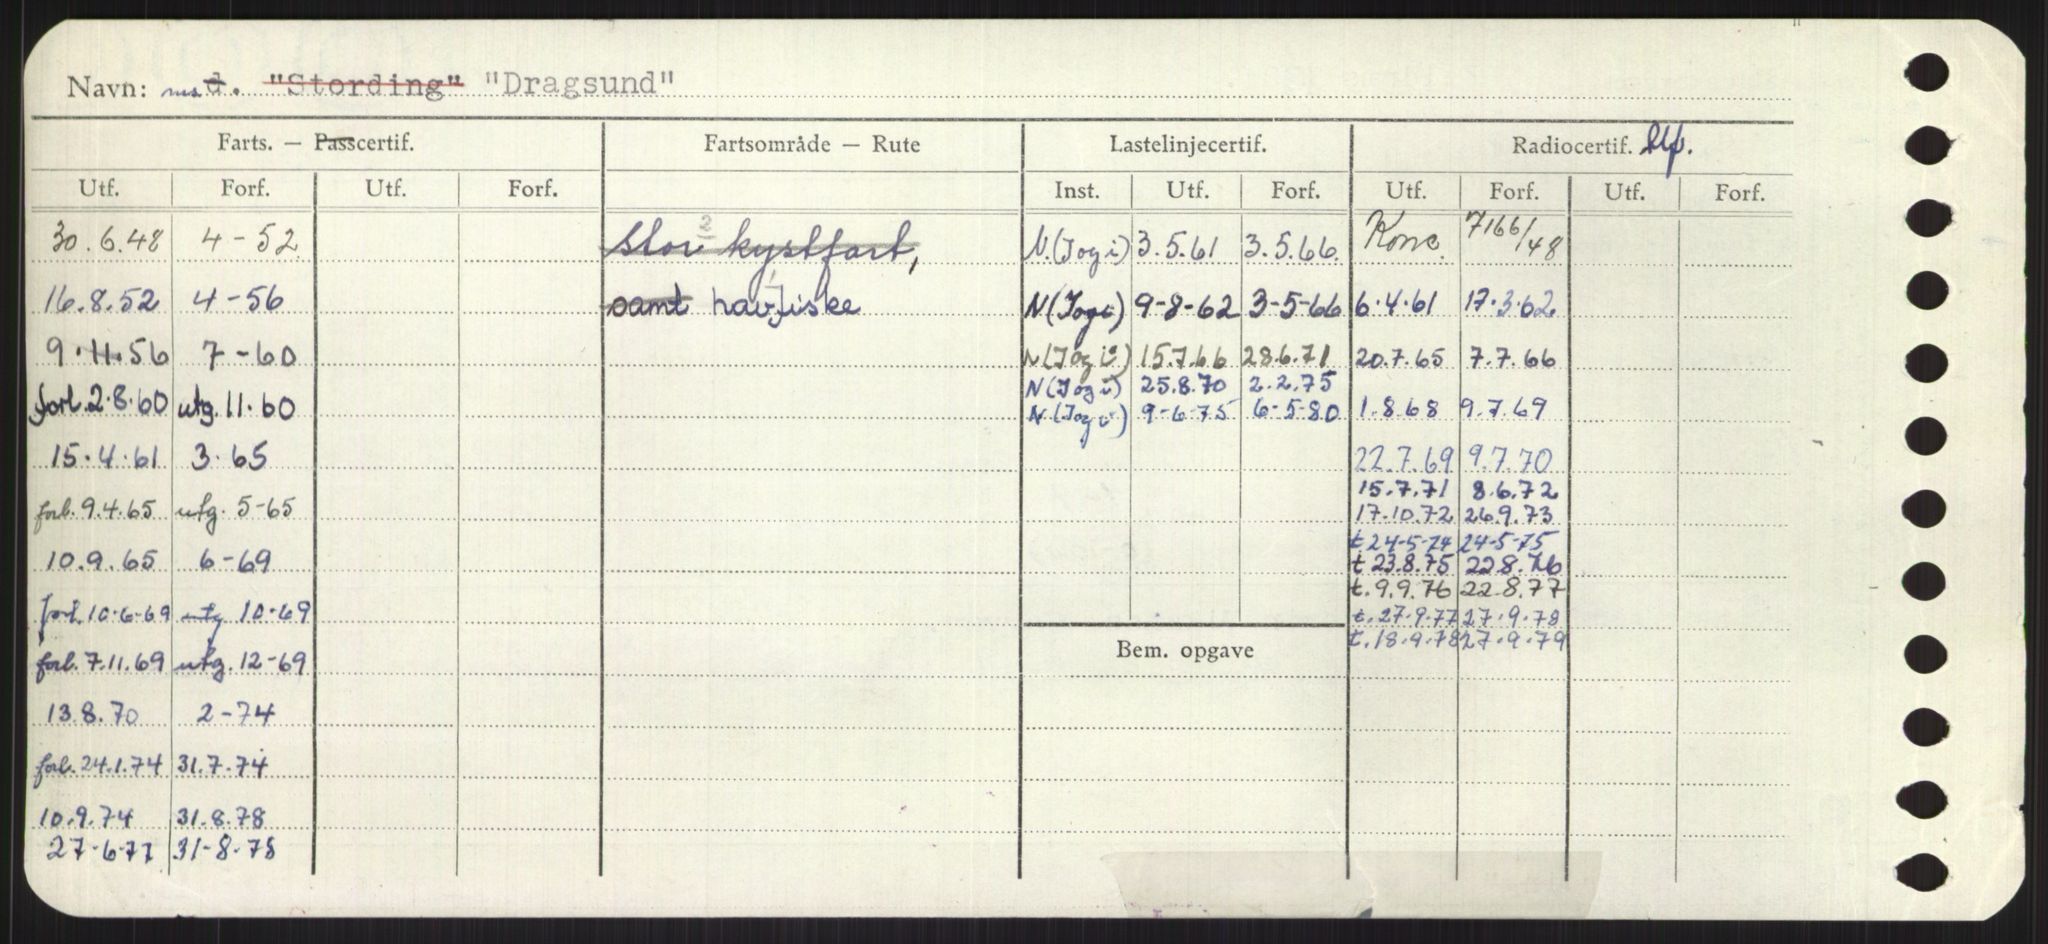 Navn: ms d. "Stording" "Dragsund"
Farts. — Passcertif. Fartsområde — Rute Lastelinjecertif. Radiocertif. tlf.
Utf. Forf. Utf. Forf. Inst. Utf. Forf. Utf. Forf. Utf. Forf.
30.6.48 4-52 Stor 2 kystfart, N.(I og i) 3.5.61 3.5.66. Konc. 7166/48
16.8.52 4-56 samt havfiske N(I og i) 9-8-62 3-5-66 6.4.61 17.3.62
9.11.56 7-60 N(I og i) 15.7.66 28.6.71 20.7.65 7.7.66
N(I og i) 25.8.70 2.2.75
forl. 2.8.60 utg. 11.60 N.(I og i) 9-6-75 6-5-80 1.8.68 9.7.69
15.4.61 3.65 22.7.69 9.7.70
15.7.71 8.6.72
forl. 9.4.65 utg. 5-65 17.10.72 26.9.73
t 24-5-74 24-5-75
10.9.65 6-69 t 23.8.75 22.8.76
t. 9.9.76 22-8.77
forl. 10-6-69 utg 10-69 t. 27.9.77 27.9.78
t. 18.9.78 27.9.79
forl. 7.11.69 utg. 12-69 Bem. opgave
13.8.70 2-74
forl. 24.1.74 31.7.74
10.9.74 31.8.78
27.6.77 31-8.78